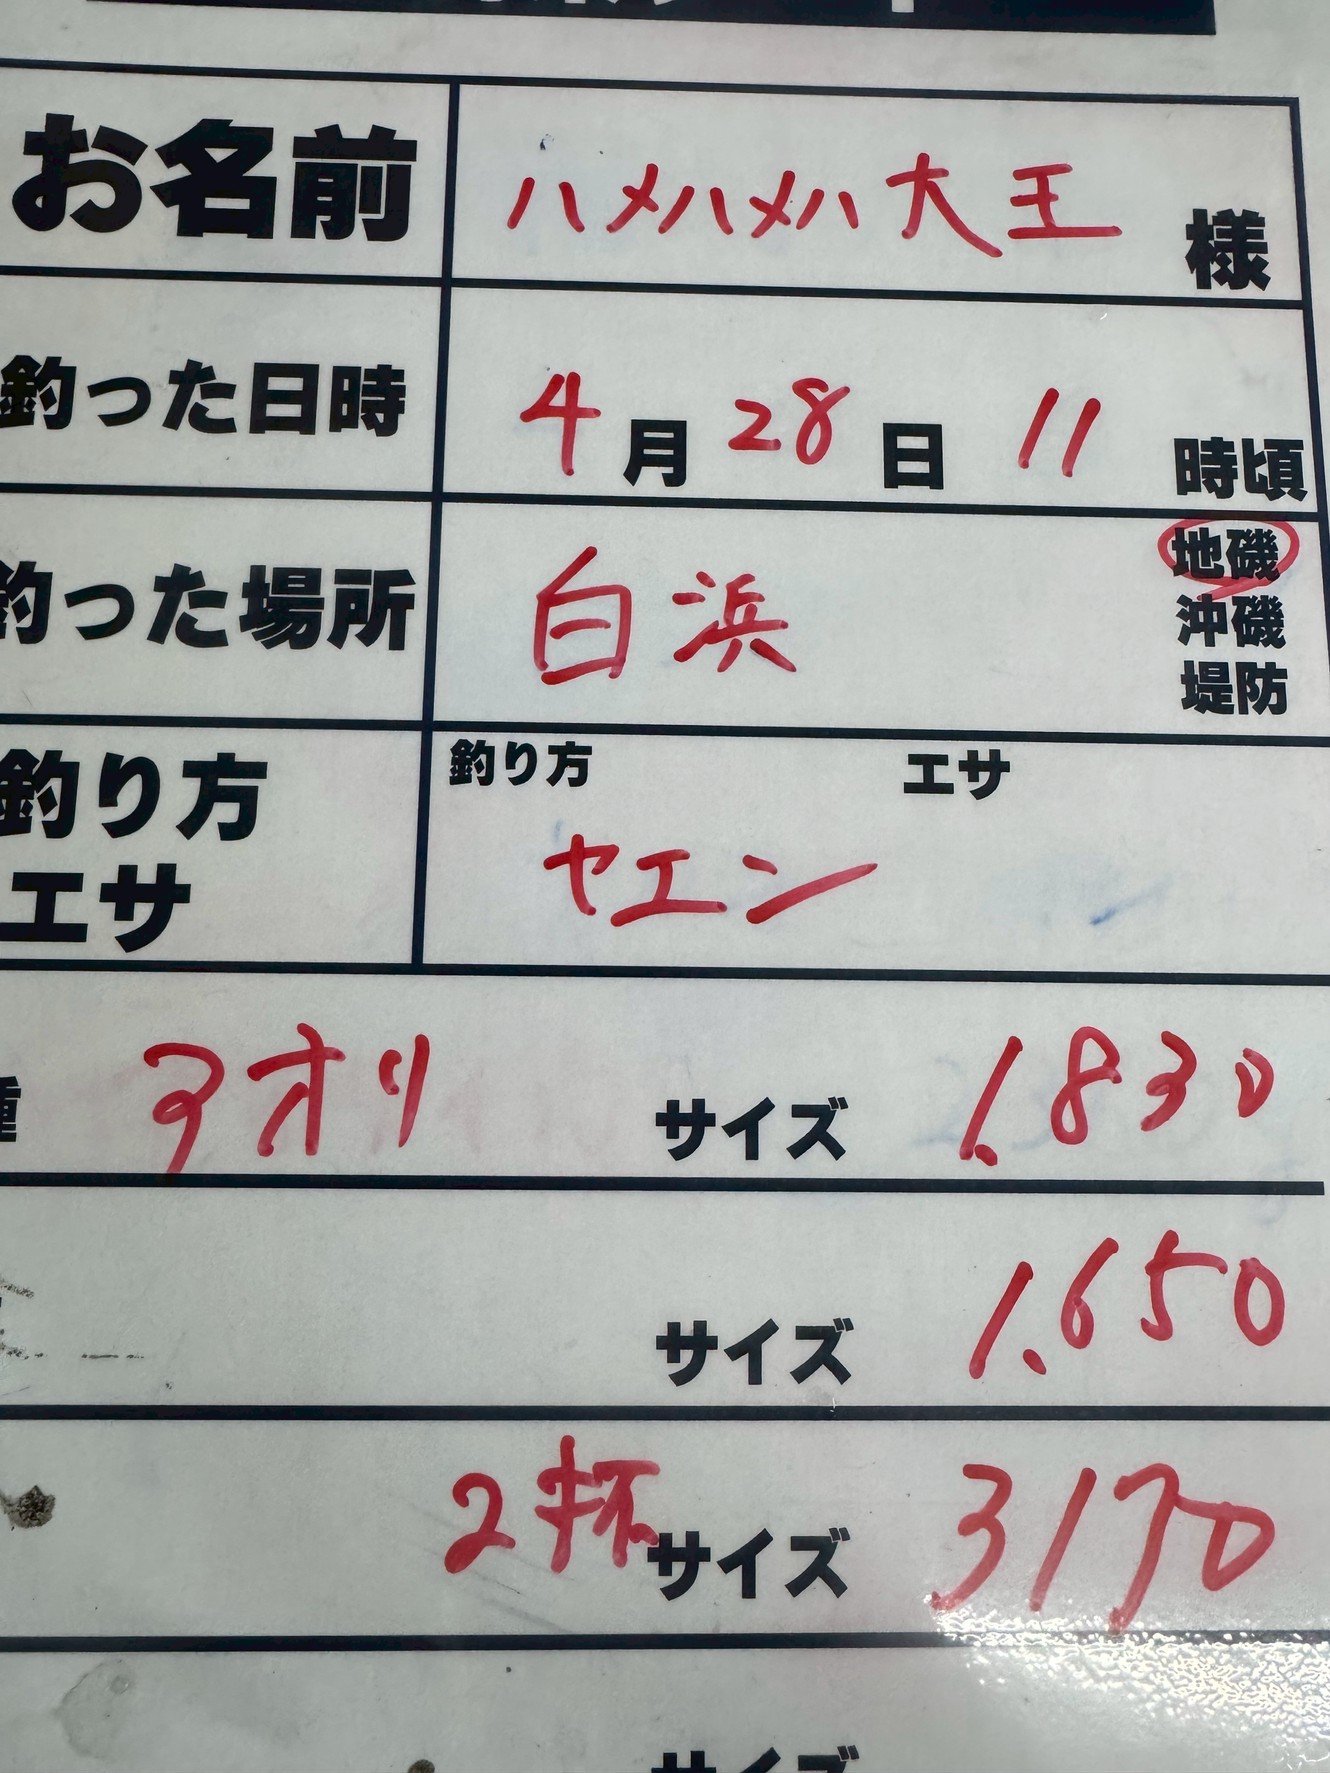 お名前 ハメハメハ大王 様
釣った日時 4月28日 11時頃
釣った場所 白浜 地磯
沖磯
堤防
釣り方 エサ
釣り方
エサ
ヤエン
種 アオリ サイズ 1.830
サイズ 1.650
2杯 サイズ 3170
サイズ